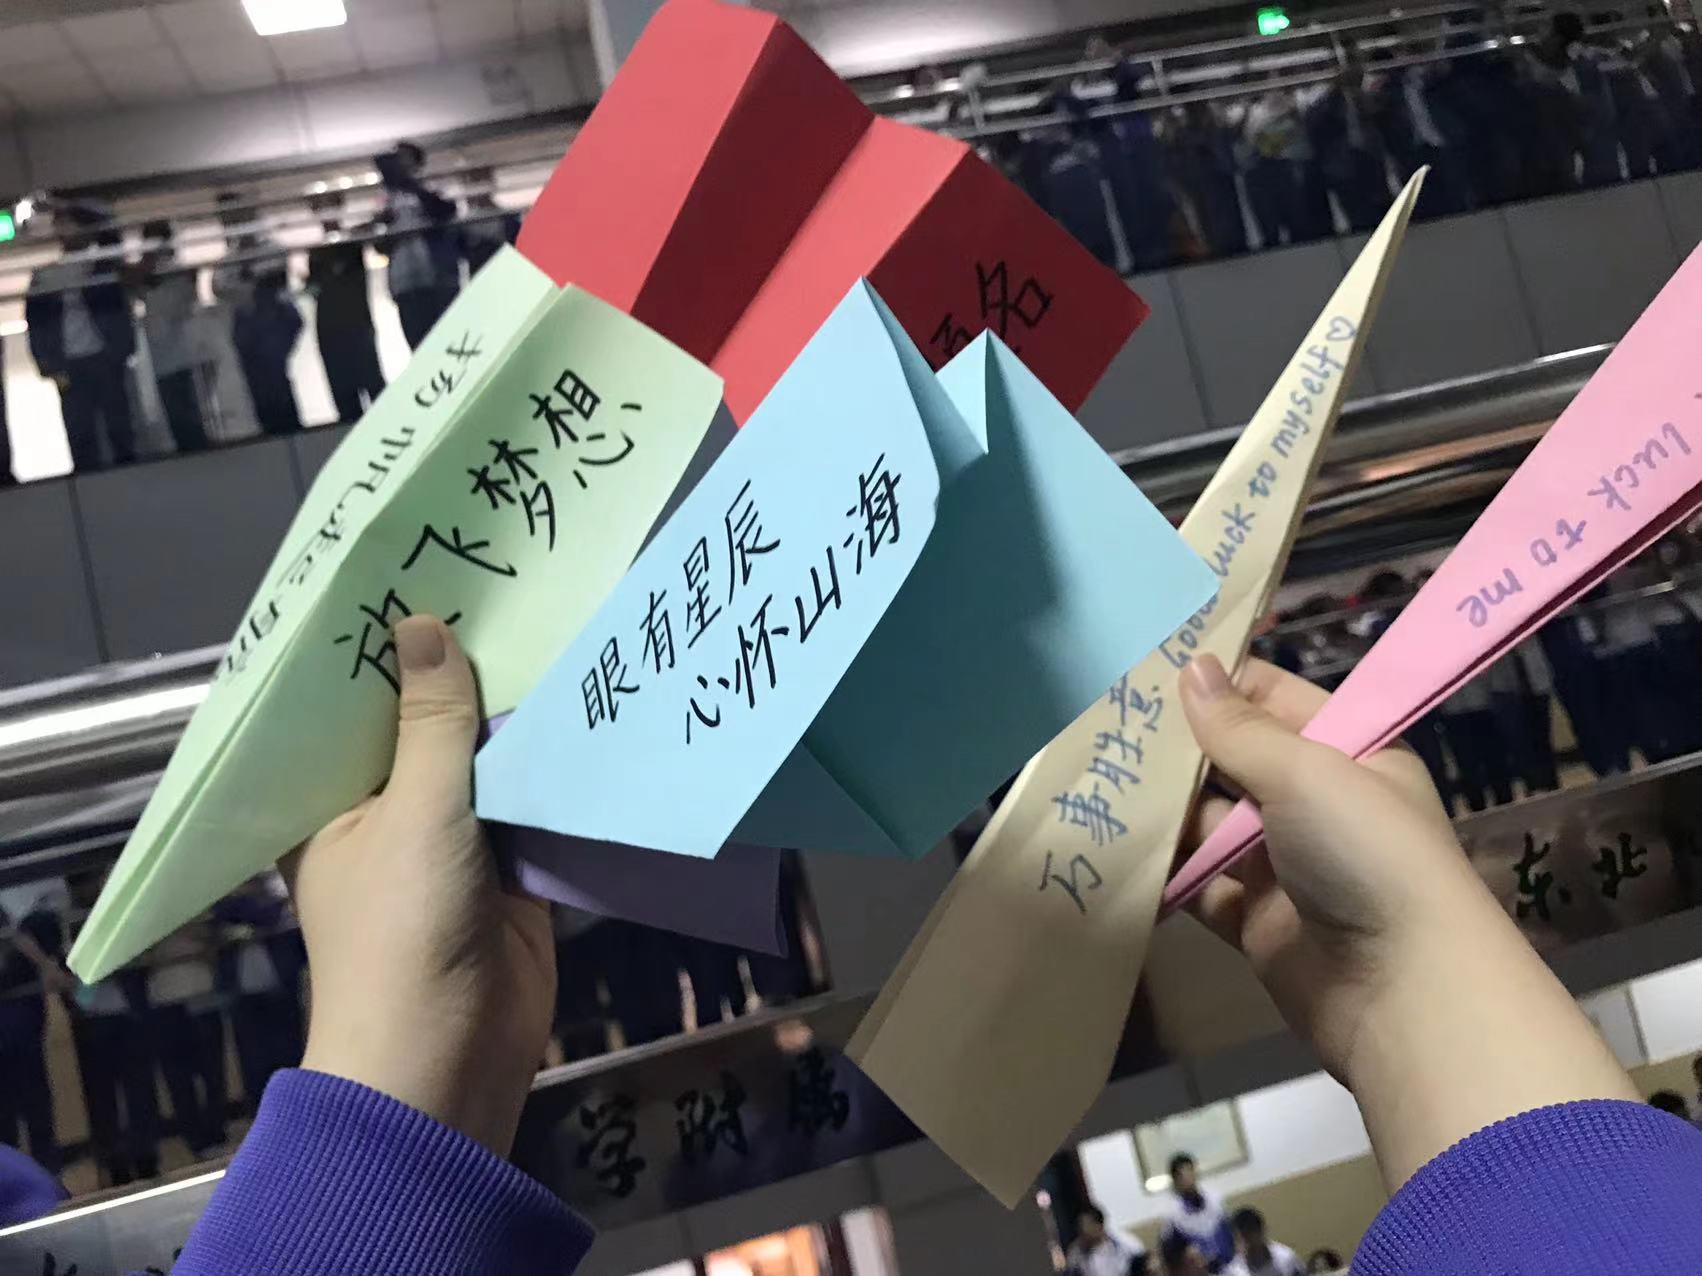 名
放飞梦想
眼有星辰
心怀山海
万事胜意 Good luck to myself♡
luck to me
东北
学附属